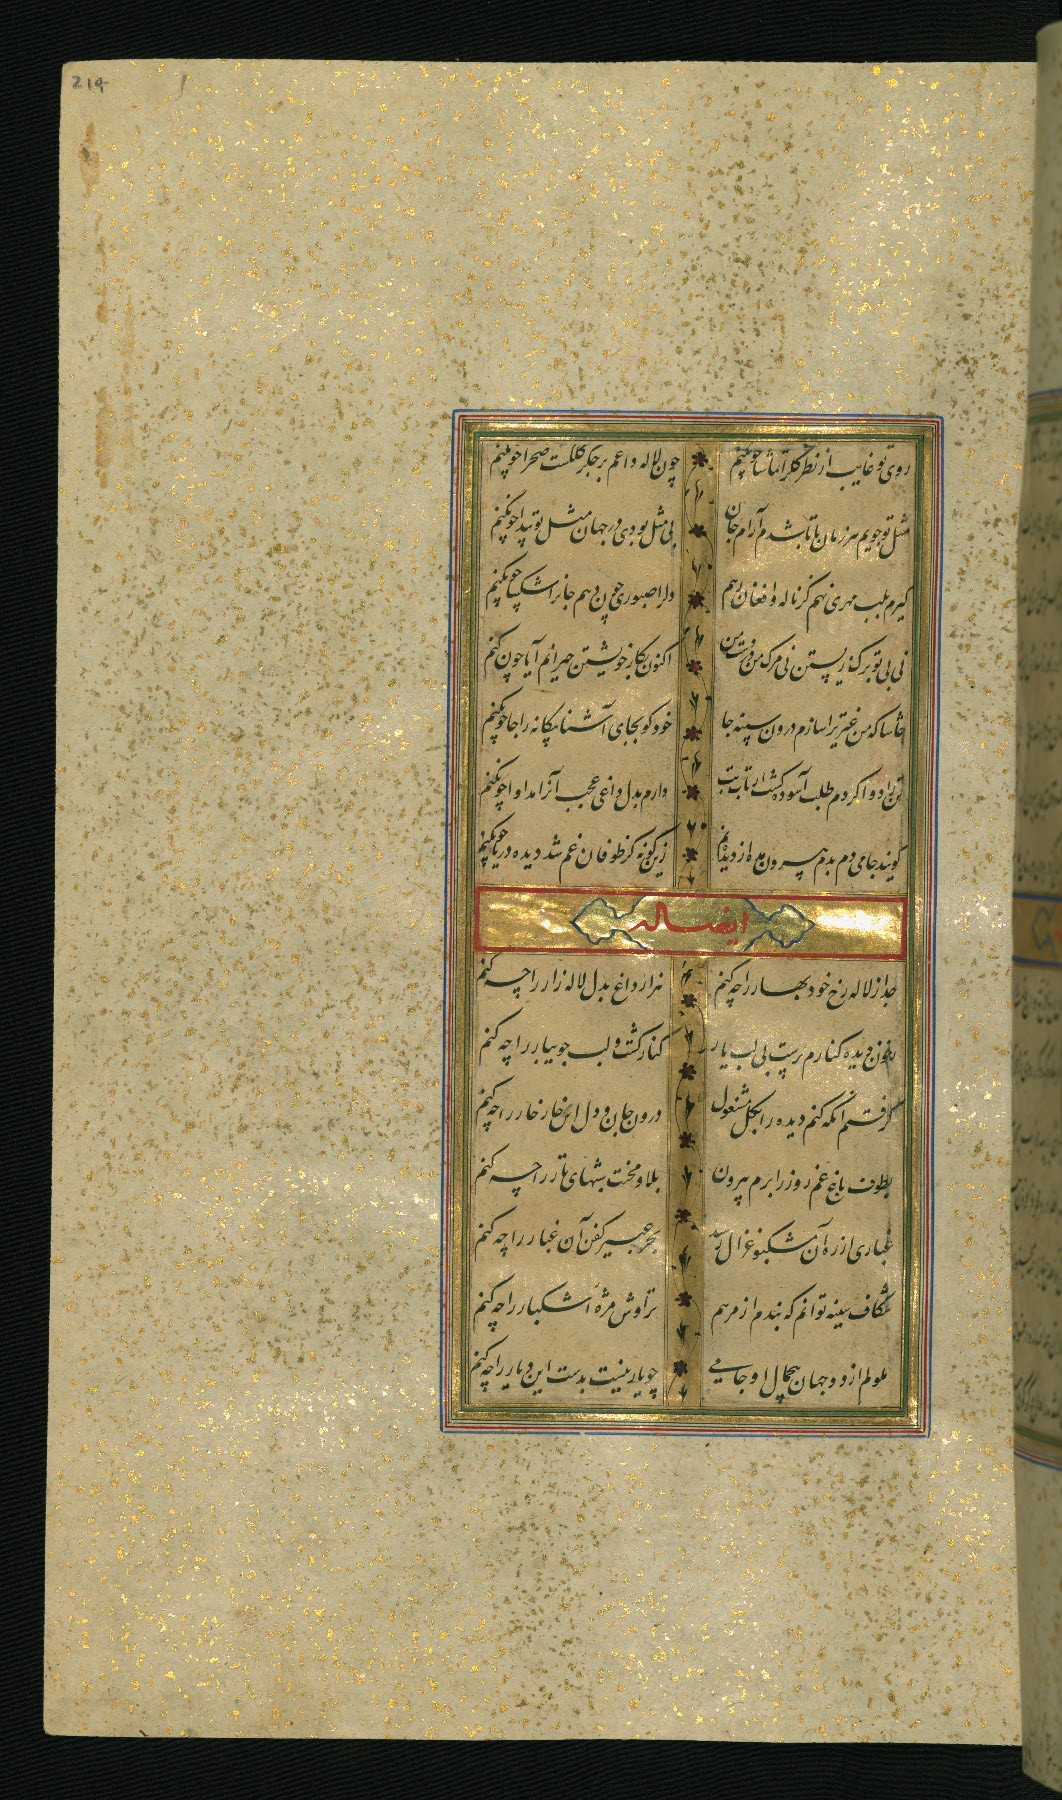 219
روی تو غایب از نظر گلرا تماشا چون کنم چون لاله داغم بر جگر گلگشت صحرا چون کنم
مثل تو جویم هر زمان تا باشدم آرام جان بی مثل بودی در جهان مثل تو پیدا چون کنم
گیرم بلب مهری نهم کز ناله و افغان رهم دلرا صبوری چون دهم جانرا شکیبا چون کنم
نی بی تو برگ زیستن نی مرگ من در دست من اکنون بکار خویشتن حیرانم آیا چون کنم
حاشا که من غیر ترا سازم درون سینه جا خود گو بجای آشنا بیگانه را جا چون کنم
تن را دوا کردم طلب آسوده گشت از تاب تب دارم بدل داغی عجب آنرا مداوا چون کنم
گویند جامی دم بدم بیرون مده از دیده نم زین گونه کز طوفان غم شد دیده دریا چون کنم
ایضا له
جدا ز لاله رخ خود بهار را چه کنم هزار داغ بدل لاله زار را چه کنم
ز خون دیده کنارم پرست بی لب یار کنار کشت و لب جویبار را چه کنم
گرفتم آنکه کنم دیده را بگل مشغول درون جان و دل این خار خار را چه کنم
بطوف باغ غم روز را برم بیرون بلا و محنت شبهای تار را چه کنم
غباری از ره آن مشکبو غزال رسید بجز عبیر کفن آن غبار را چه کنم
شکاف سینه توانم که بندم از مرهم تراوش مژه اشکبار را چه کنم
ملولم از دو جهان بیجمال او جامی چو یار نیست بدست این دیار را چه کنم